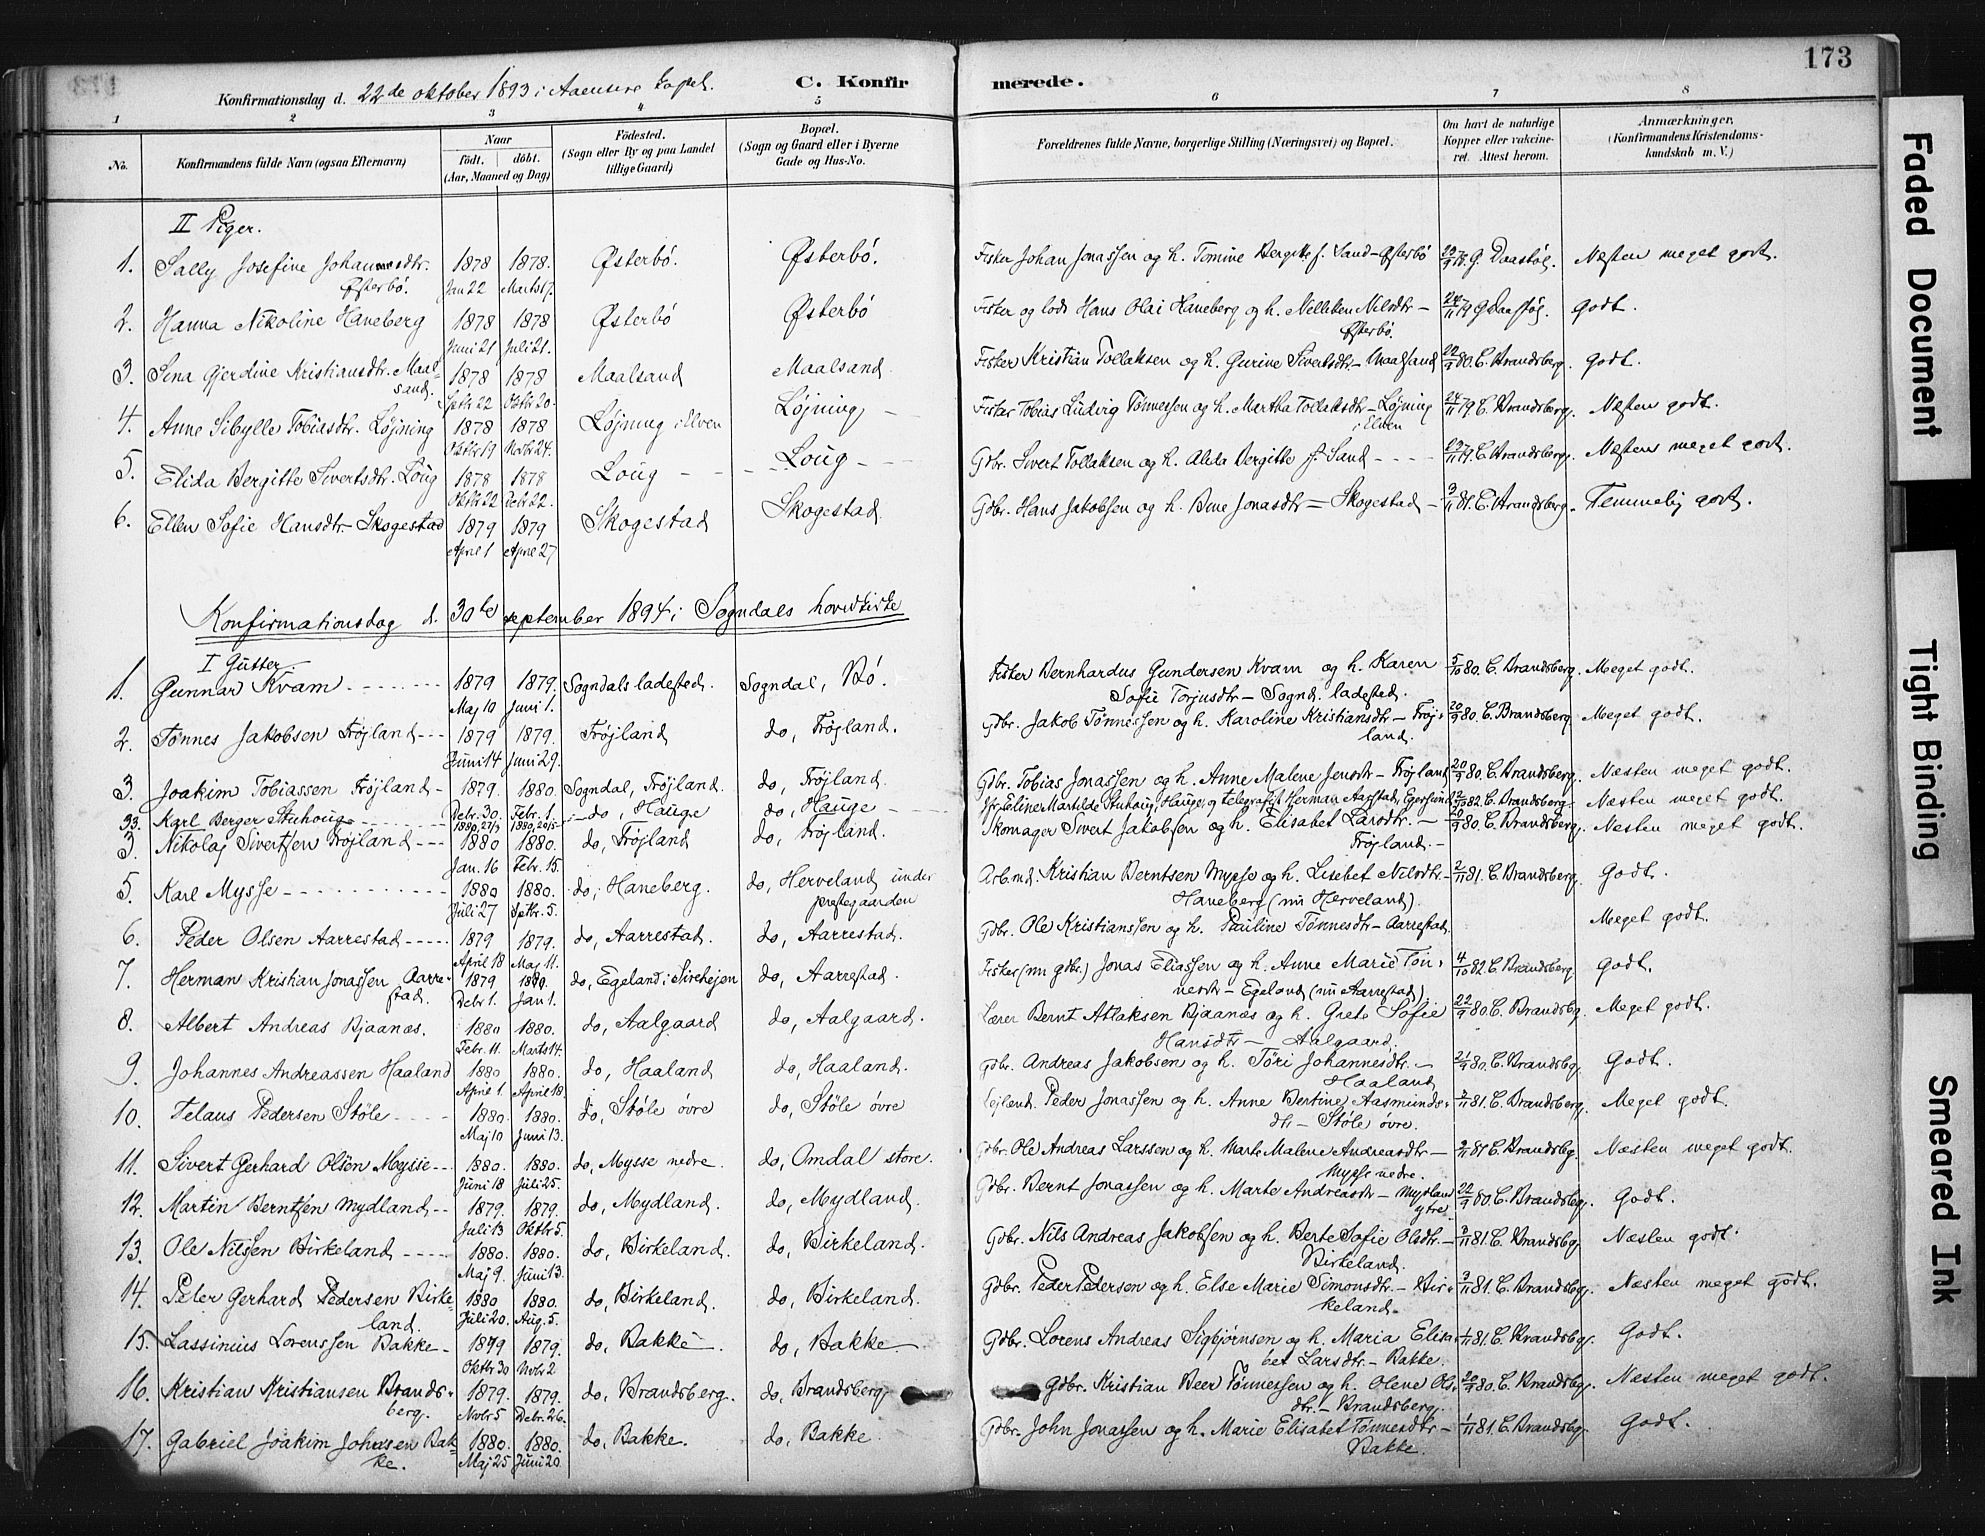 173
Konfirmationsdag d. 22de oktober 1893 i Aaensire kapel. C. Konfirmerede.
1 2 3 4 5 6 7 8
No. Konfirmandens fulde Navn (ogsaa Efternavn) Naar født. døbt. (Aar, Maaned og Dag) Fødested. (Sogn eller By og paa Landet tillige Gaard) Bopæl. (Sogn og Gaard eller i Byerne Gade og Hus-No. Forældrenes fulde Navne, borgerlige Stilling (Næringsvei) og Bopæl. Om havt de naturlige Kopper eller vakcineret. Attest herom. Anmærkninger. (Konfirmandens Kristendomskundskab m. V.)
II Piger.
1. Sally Josefine Johannesdtr. Østerbø. 1878 Jan 22 1878. Marts 17. Østerbø. Østerbø. Fisker Johan Jonassen og h. Tomine Bergitte f. Sand - Østerbø G. Daastøl. Næsten meget godt.
2. Hanna Nikoline Haneberg 1878 Juni 21 1878 Juli 21. Østerbø Østerbø Fisker og lods Hans Olai Haneberg og h. Nelliken Nilsdtr - Østerbø. 24/11 79 G Daastøl. Godt.
3. Sina Gjerdine Kristiansdtr. Maalsand. 1878 Septbr 22 1878 Oktbr 20. Maalsand Maalsand. Fisker Kristian Tollaksen og h. Gurine Sivertsdtr - Maalsand 22/9 80. C. Brandsberg. Godt.
4. Anne Sibylle Tobiasdtr. Løjning 1878 Oktbr 19 1878 Novbr 24. Løjning i Elven Løjning - Fisker Tobias Ludvig Tønnessen og h. Martha Tollaksdtr - Løjning i Elven 24/11 79 C. Brandsberg. Næsten godt.
5. Elida Bergitte Sivertsdtr. Loug 1878 Oktbr 22 1878 Debr 22. Loug - - Loug - - Gdbr. Sivert Tollaksen og h. Alida Bergitte f. Sand - - - - C. Brandsberg. Næsten meget godt.
6. Ellen Sofie Hansdtr - Skogestad 1879 April 1 1879 April 27 Skogestad Skogestad. Gdbr. Hans Jakobsen og h. Bine Jonasdtr - Skogestad - 3/11 81. C. Brandsberg. Temmelig godt.
Konfirmationsdag d. 30te september 1894 i Sogndals hovedkirke
I Gutter.
1. Gunnar Kvam - - - 1879 Maj 10 1879. Juni 1. Sogndals ladested. Sogndal, Bø. Fisker Bernhardus Gundersen Kvam og h. Karen Sofie Torjusdtr - Sognd. ladested. 5/10 80. C. Brandsberg. Meget godt.
2. Tønnes Jakobsen Frøjland - - - 1879 Juni 14 1879. Juni 29. Frøjland do, Frøjland. Gdbr. Jakob Tønnessen og h. Karoline Kristiansdtr - Frøjland. 20/9 80. C. Brandsberg Meget godt.
3. Joakim Tobiassen Frøjland - 1879. Debr. 30. 1880. Febr. 1. Sogndal, Frøjland. do, Frøjland. Gdbr. Tobias Jonassen og h. Anne Malene Jensdtr - Frøjland 20/9 80. C. Brandsberg. Næsten meget godt.
33. Karl Berger Stuhoug - - - do, Hauge do, Hauge - Matilde Stuhoug, Hauge, og telegrafist Herman Aarstad, Egersund 82. C. Brandsberg. Næsten meget godt.
3. Nikolaj Sivertsen Frøjland - - - 1880 Jan. 16 1880. Febr. 15. do, Frøjland do, Frøjland. Skomager Sivert Jakobsen og h. Elisabet Larsdtr. - Frøjland. - 80. C. Brandsberg. Næsten meget godt.
5. Karl Mysse - - - 1880 Juli 27 1880. Sptbr. 5. do, Haneberg. do, Herveland under prestegaarden Arb.md. Kristian Berntsen Mysse og h. Lisebet Nilsdtr - Haneberg (nu Herveland). 2/11 81. C. Brandsberg. Godt.
6. Peder Olsen Aarrestad - - - - 1879 April 18 1879. Maj 11. do, Aarrestad. do, Aarrestad. Gdbr. Ole Kristianssen og h. Pauline Tønnesdtr - Aarrestad. Meget godt.
7. Herman Kristian Jonassen Aarrestad. 1879 Debr 1. 1880. Jan 1. do, Egeland i Sirehejen do, Aarrestad. Fisker (nu gdbr.) Jonas Eliassen og h. Anne Marie Tønnesdtr - Egeland (nu Aarrestad) 4/10 82. C. Brandsberg Godt.
8. Albert Andreas Bjaanæs. 1880 Febr. 11. 1880. Marts 14. do, Aalgaard do, Aalgaard. Lærer Bernt Atlaksen Bjaanæs og h. Grete Sofie Hansdtr - Aalgaard. 22/9 80. C. Brandsbg. Meget godt.
9. Johannes Andreassen Haaland 1880 April 1. 1880. April 18. do, Haaland do, Haaland. Gdbr. Andreas Jakobsen og h. Tøri Johannesdtr. - Haaland 21/9 80. C. Brandsbg. Godt.
10. Telaus Pedersen Støle - - - 1880. Maj 10 1880. Juni 13. do, Støle øvre do, Støle øvre Lejlænd. Peder Jonassen og h. Anne Bertine Aasmundsdtr - Støle øvre. 3/11 81. C. Brandsbg. Meget godt.
11. Sivert Gerhard Olsen Mysse - - 1880. Juni 18 1880. Juli 25. do, Mysse nedre. do, Omdal store. Gdbr. Ole Andreas Larssen og h. Marte Malene Andreasdtr - Mysse nedre. 2/11 81 C. Brandsbg. Næsten meget godt.
12. Martin Berntsen Mydland - - 1879. Juli 13 1879. Oktbr 5. do, Mydland. do, Mydland. Gdbr. Bernt Jonassen og h. Marte Andreasdtr - Mydland ytre 22/9 80 C. Brandsbg. Godt.
13. Ole Nilssen Birkeland - - - - 1880. Maj 9. 1880. Juni 13. do, Birkeland. do, Birkeland. Gdbr. Nils Andreas Jakobsen og h. Berte Sofie Olsdtr. - Birkeland. 3/11 81. C. Brandsbg. Næsten godt.
14. Peter Gerhard Pedersen Birkeland. 1880 Juli 20. 1880. Aug. 5. do, Birkeland. do, Birkeland. Gdbr. Peder Pedersen og h. Else Marie Simonsdtr. - Birkeland. 3/11 81. C. Brandsbg. Næsten meget godt.
15. Lassinius Lorenssen Bakke - 1879 Oktbr 30 1879. Novbr 2 do, Bakke do, Bakke Gdbr. Lorens Andreas Sigbjørnsen og h. Maria Elisabet Larsdtr. - Bakke. 1/11 81. C. Brandsbg. Godt.
16. Kristian Kristiansen Brandsberg. 1879. Novbr 5 1879. Debr. 26. do, Brandsberg. do, Brandsberg. Gdbr. Kristian Beer Tønnessen og h. Olene Olsdtr. - Brandsberg. 20/9 80. C. Brandsbg. Næsten meget godt.
17. Gabriel Joakim Johnsen Bakke. 1880. Maj 25 1880. Juni 20. do, Bakke. do, Bakke Gdbr. John Jonassen og h. Marie Elisabet Tønnesdtr - Bakke. 1/11 81. C. Brandsbg. Godt.
Faded Document
Tight Binding
Smeared Ink